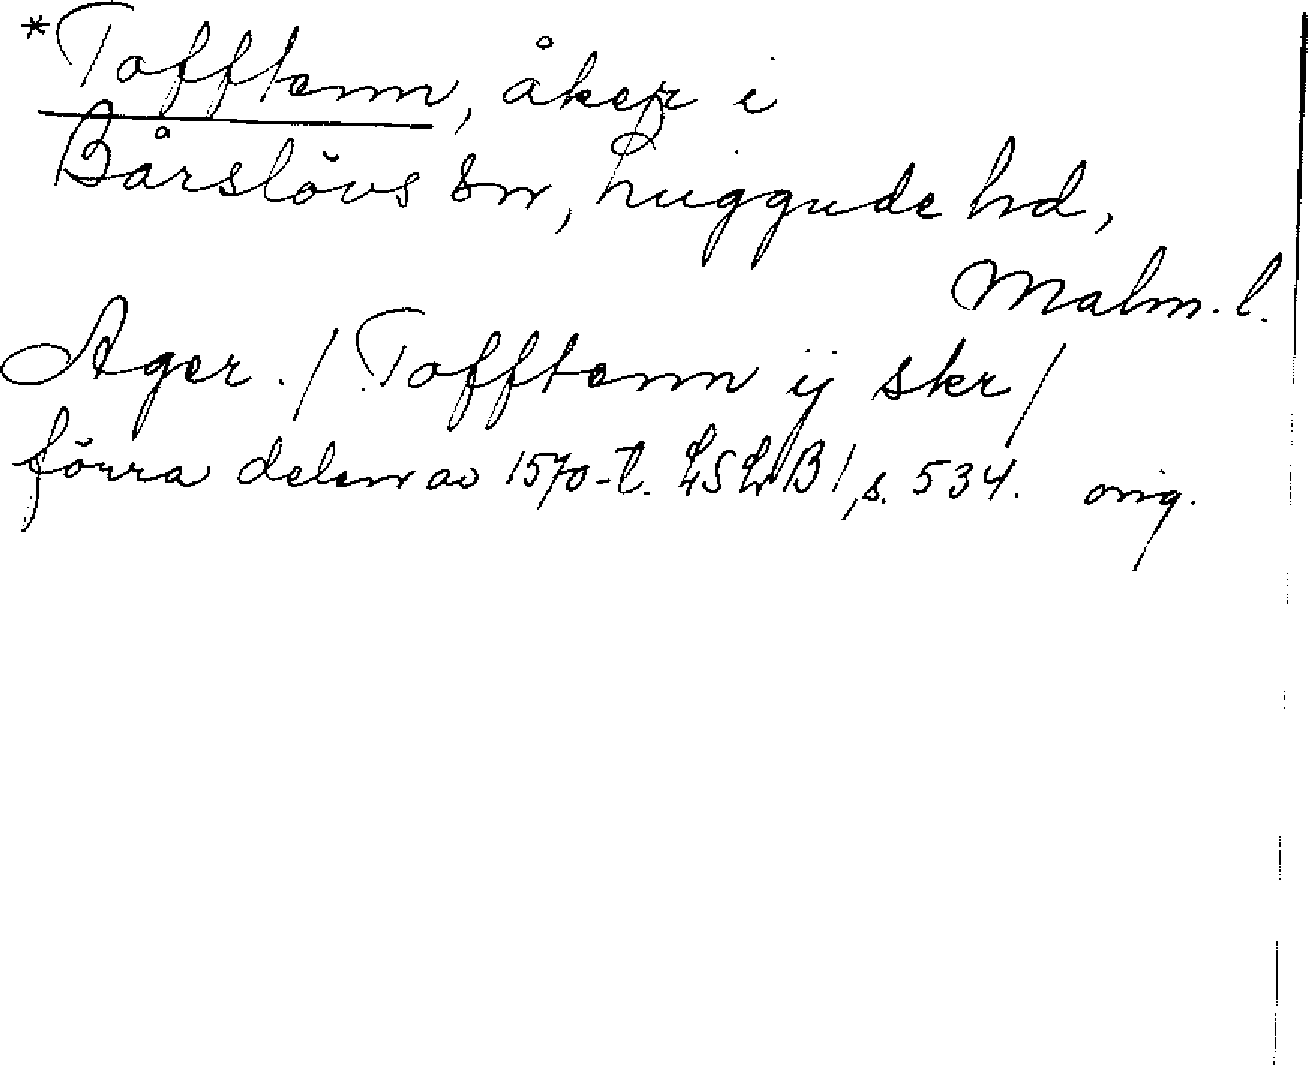 *Tofftenn, åker i
Bårslövs sn, Luggude hd,
Malm. l.
Ager. / Tofftenn ij skr /
förra delen av 1570-t. LSLB 1, s. 534. orig.